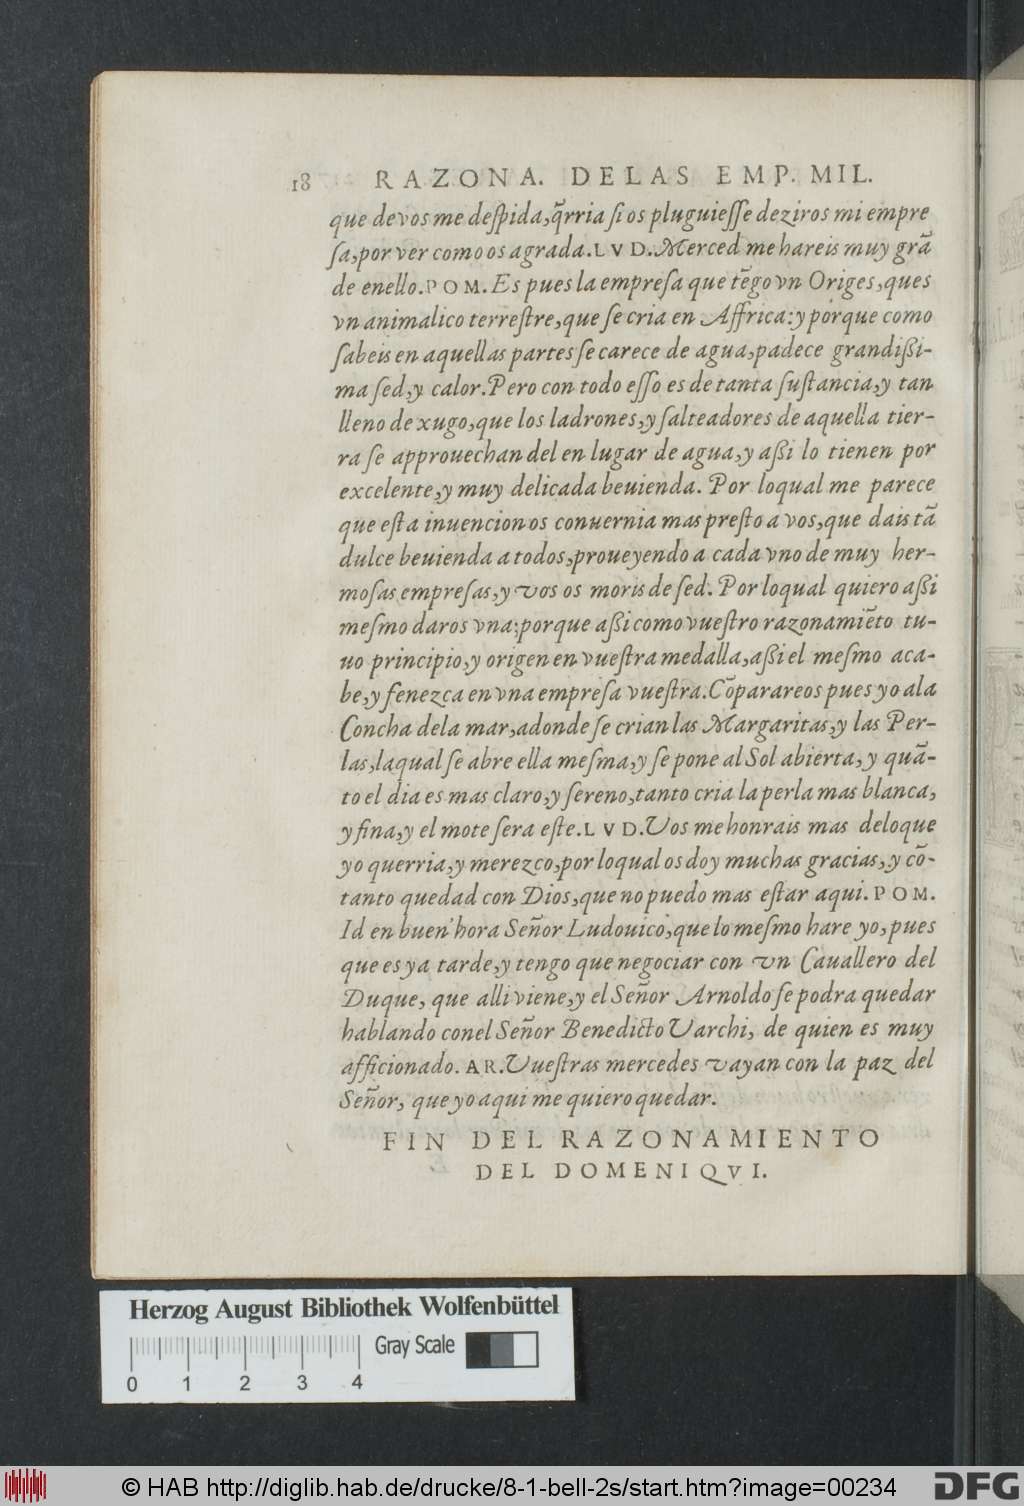 18 RAZONA. DELAS EMP. MIL.
que de vos me deſpida, q̃rria ſi os pluguieſſe deziros mi empre
ſa, por ver como os agrada. LVD. Merced me hareis muy grã
de enello. POM. Es pues la empreſa que tẽgo vn Origes, ques
vn animalico terreſtre, que ſe cria en Affrica: y porque como
ſabeis en aquellas partes ſe carece de agua, padece grandißi-
ma ſed, y calor. Pero con todo eſſo es de tanta ſuſtancia, y tan
lleno de xugo, que los ladrones, y ſalteadores de aquella tier-
ra ſe approuechan del en lugar de agua, y aßi lo tienen por
excelente, y muy delicada beuienda. Por loqual me parece
que eſta inuencion os conuernia mas preſto a vos, que dais tã
dulce beuienda a todos, proueyendo a cada vno de muy her-
moſas empreſas, y vos os moris de ſed. Por loqual quiero aßi
meſmo daros vna: porque aßi como vueſtro razonamiẽto tu-
uo principio, y origen en vueſtra medalla, aßi el meſmo aca-
be, y fenezca en vna empreſa vueſtra. Cõparareos pues yo ala
Concha dela mar, adonde ſe crian las Margaritas, y las Per-
las, laqual ſe abre ella meſma, y ſe pone al Sol abierta, y quã-
to el dia es mas claro, y ſereno, tanto cria la perla mas blanca,
y fina, y el mote ſera eſte. LVD. Vos me honrais mas deloque
yo querria, y merezco, por loqual os doy muchas gracias, y cõ-
tanto quedad con Dios, que no puedo mas eſtar aqui. POM.
Id en buen' hora Señor Ludouico, que lo meſmo hare yo, pues
que es ya tarde, y tengo que negociar con vn Cauallero del
Duque, que alli viene, y el Señor Arnoldo ſe podra quedar
hablando conel Señor Benedicto Varchi, de quien es muy
afficionado. AR. Vueſtras mercedes vayan con la paz del
Señor, que yo aqui me quiero quedar.
FIN DEL RAZONAMIENTO
DEL DOMENIQVI.
Herzog August Bibliothek Wolfenbüttel
Gray Scale
0 1 2 3 4
© HAB http://diglib.hab.de/drucke/8-1-bell-2s/start.htm?image=00234
DFG